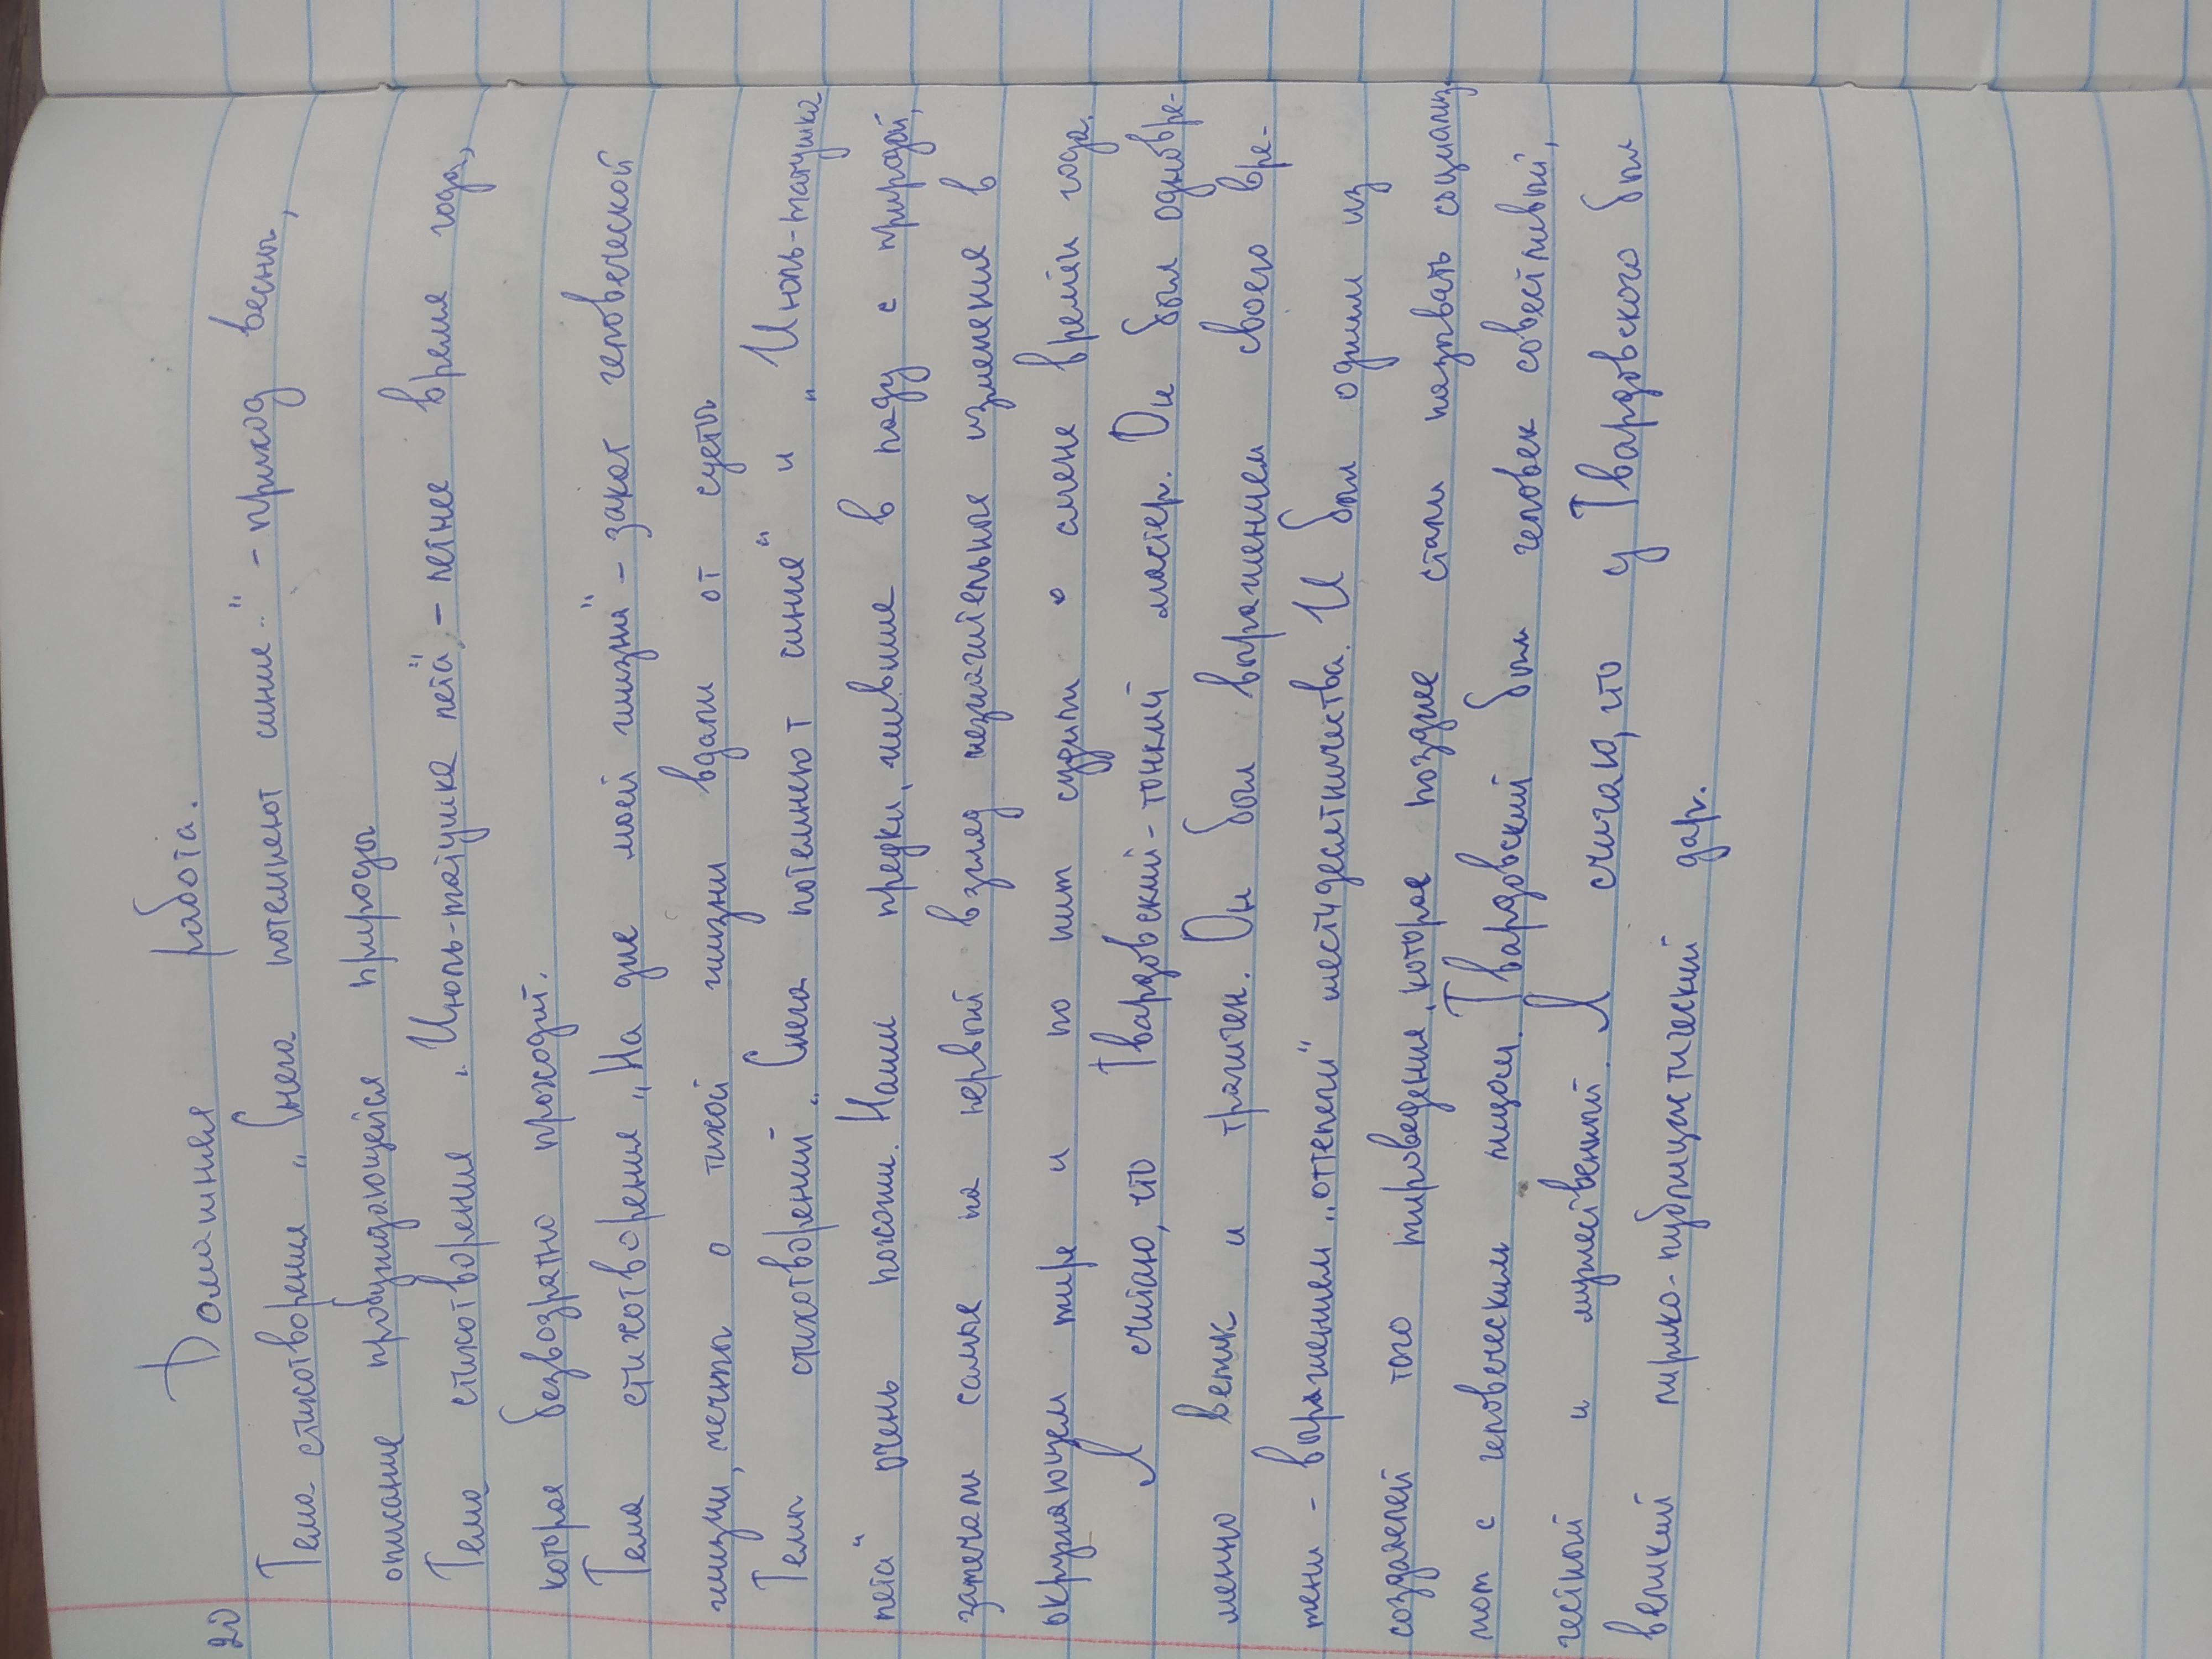 Домашняя работа.
20
Тема стихотворения „Снега потемнеют синие.." - приход весны,
описание пробуждающейся природы
Тема стихотворения „Июль-макушка лета", - летнее время года,
которое безвозратно проходит.
Тема стихотворения „На дне моей жизни" - закат человеческой
жизни, мечты о тихой жизни вдали от суеты
Темы стихотворений „Снега потемнеют синие" и „Июль-макушка
лета" очень похожи. Наши предки, жившие в ладу с природой,
замечали самые на первый взгляд незначительные изменения в
окружающем мире и по ним судили о смене времён года.
Я считаю, что Твардовский - тонкий мастер. Он был одновре-
менно велик и трагичен. Он был выражением своего вре-
мени - выражением „оттепели" шестидесятничества. И был одним из
создателей того мироведения, которое позднее стали называть социализ-
мом с человеческим лицом. Твардовский был человек совестливый,
честный и мужественный. Я считаю, что у Твардовского был
великий лирико-публицистический дар.